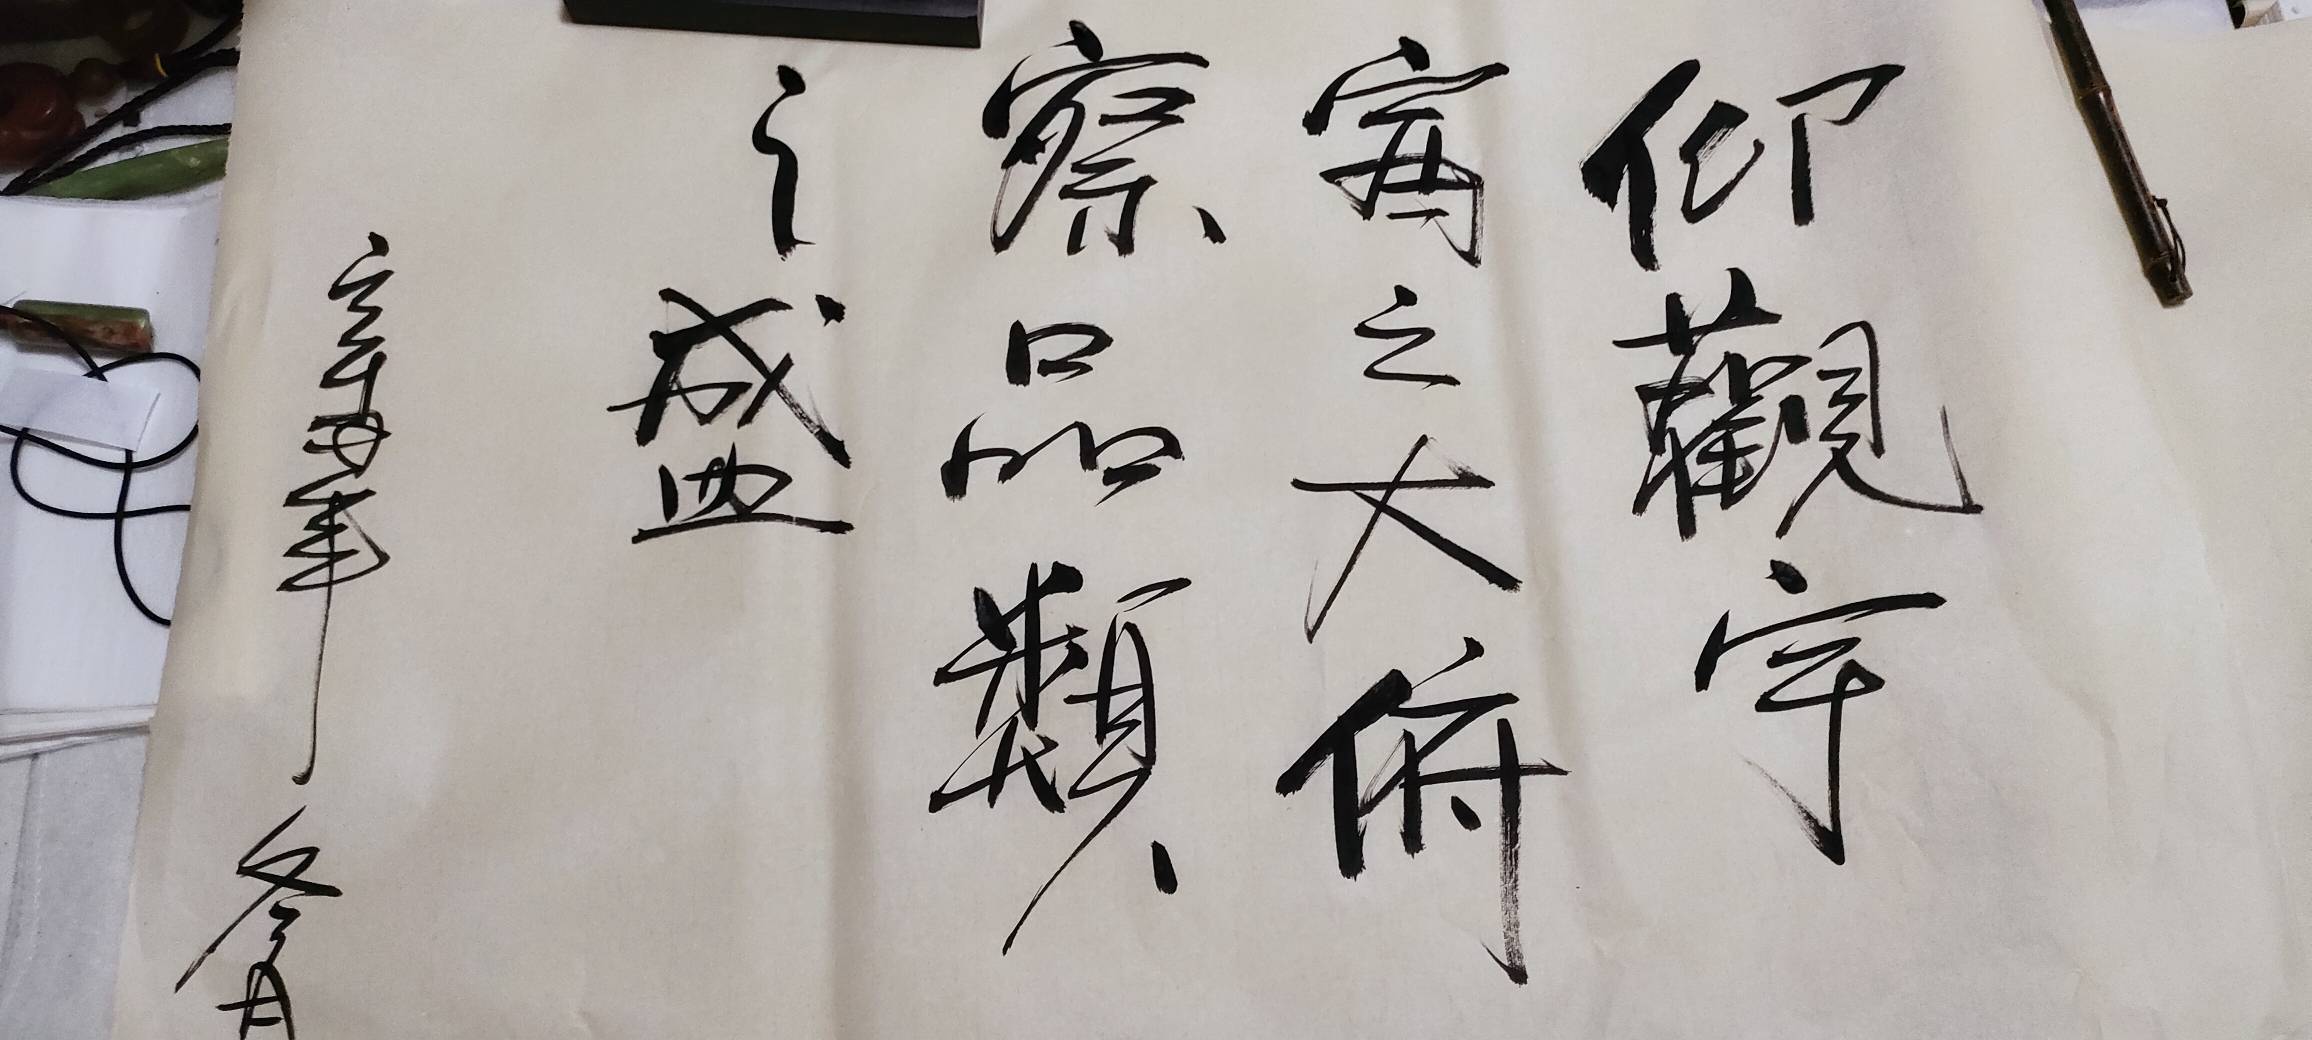 仰觀宇
宙之大俯
察品類
之盛
辛丑年冬月